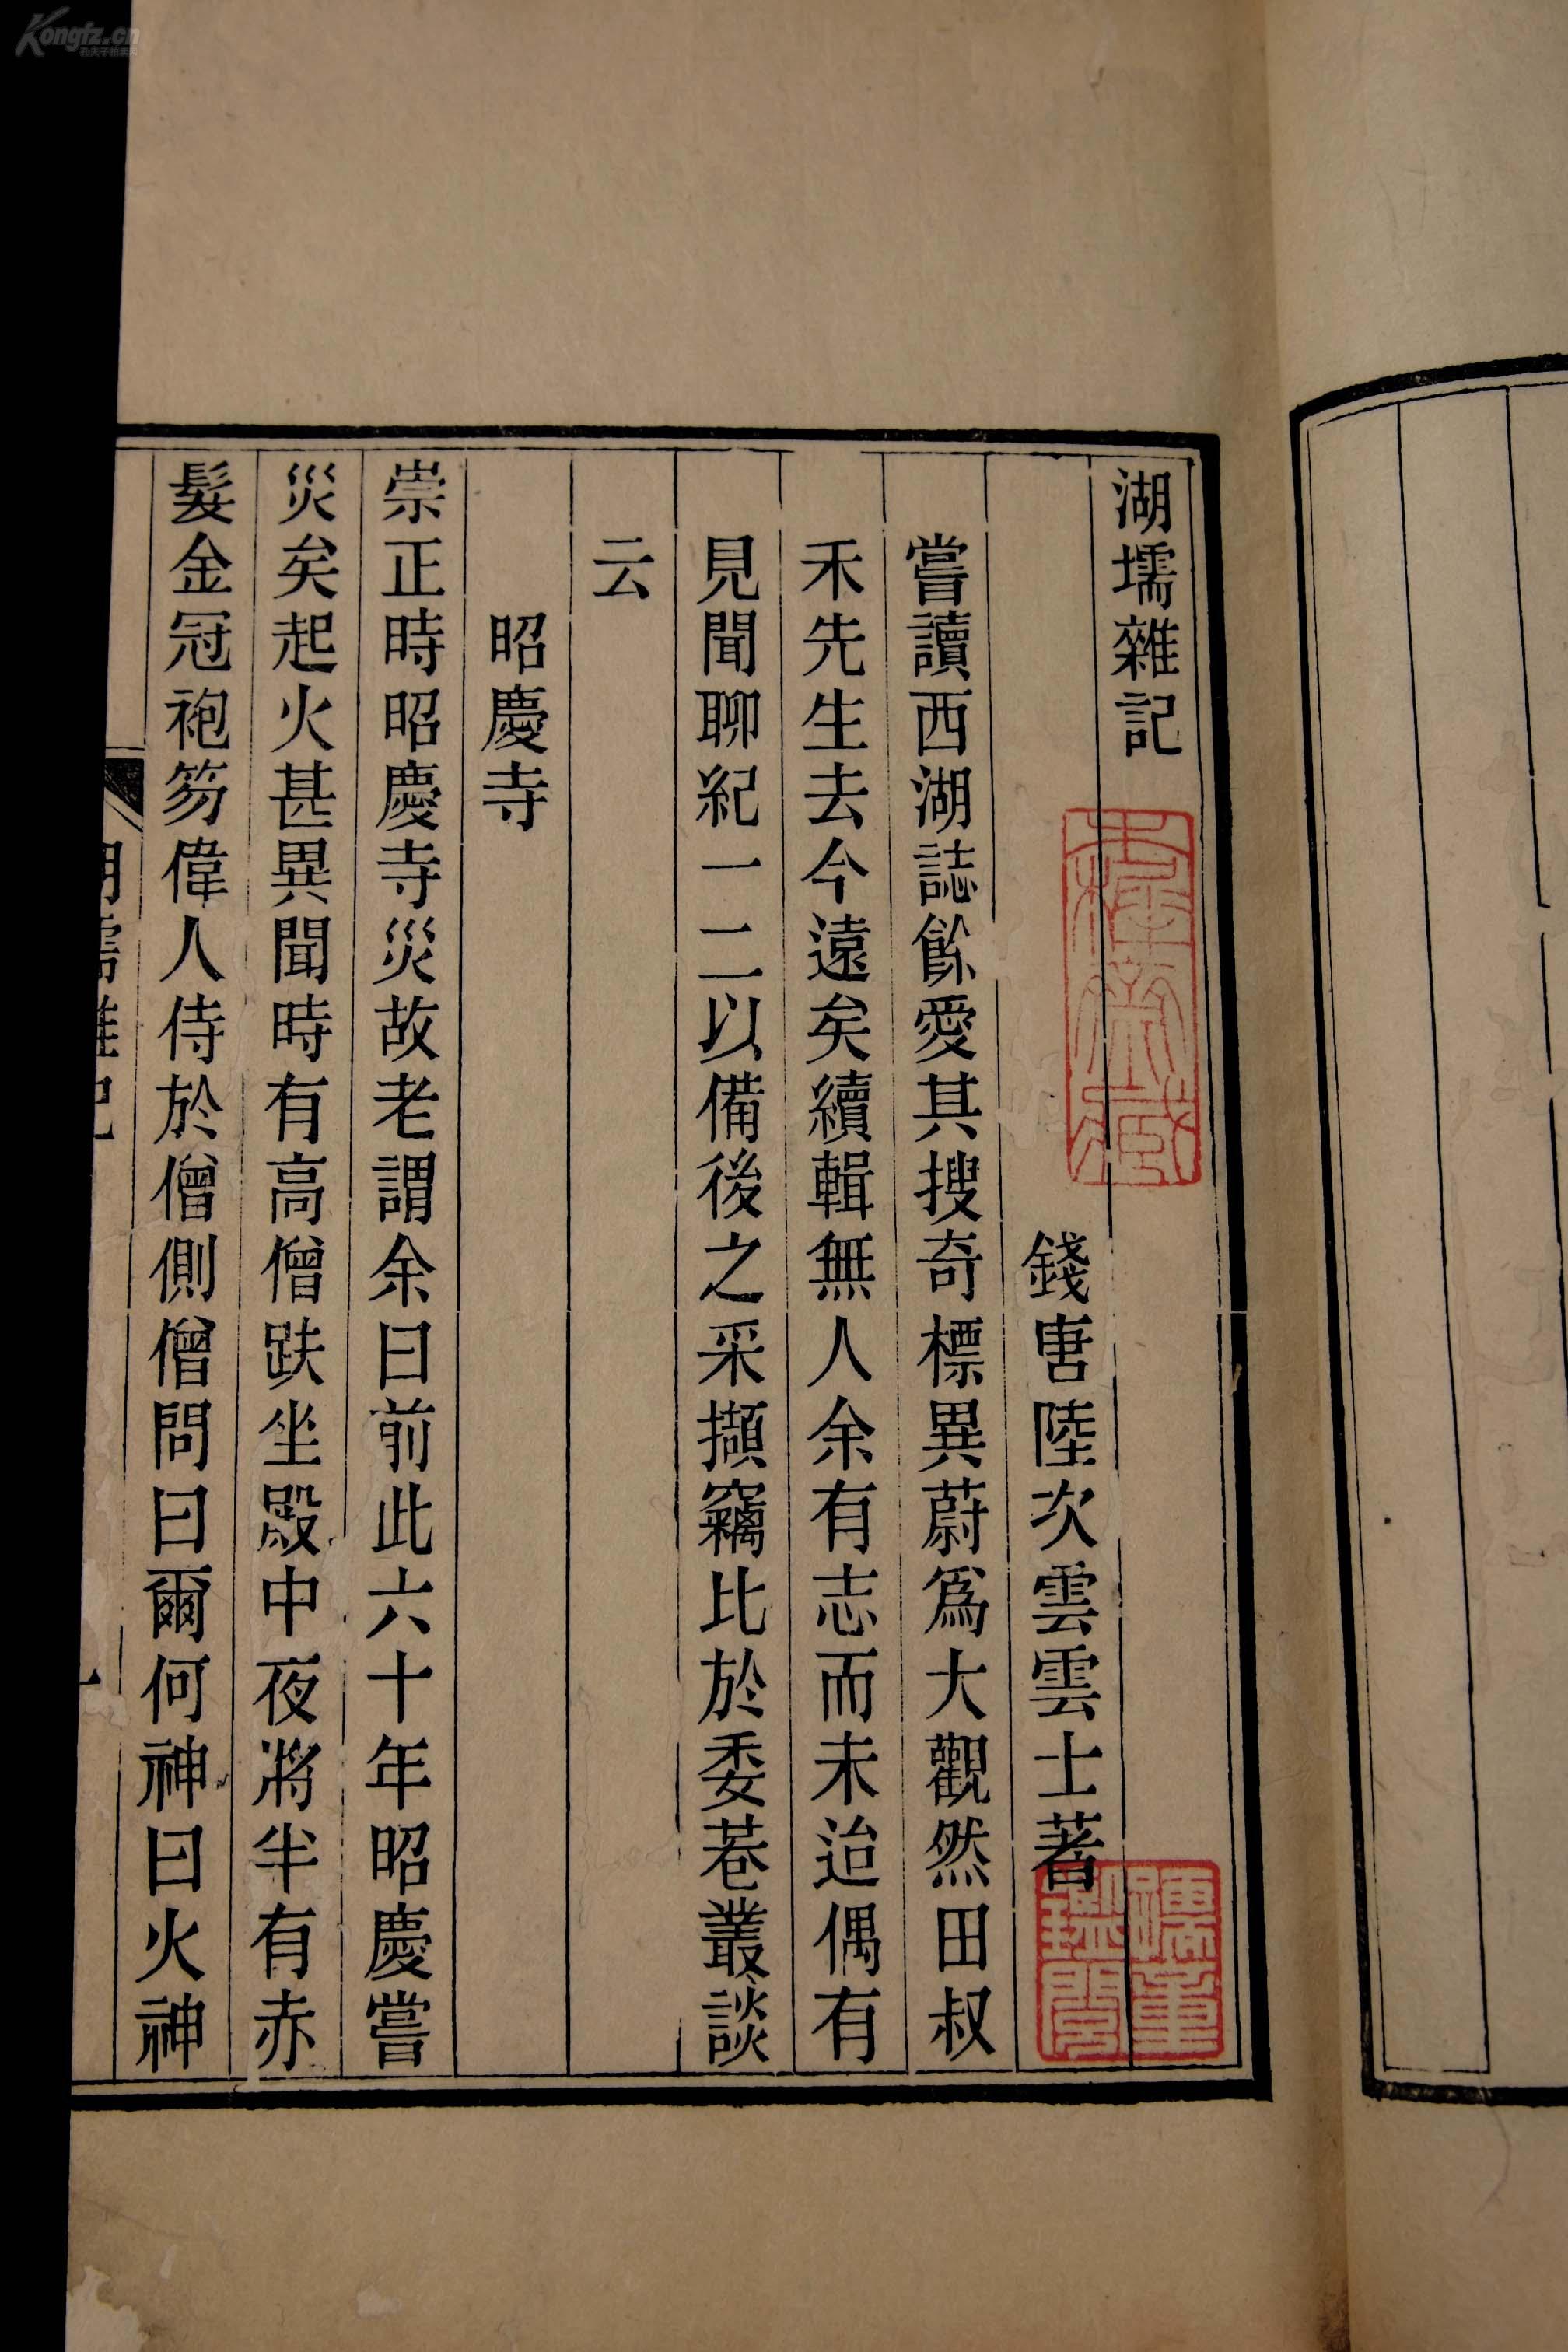 湖壖雜記
錢唐陸次雲雲士著
嘗讀西湖誌餘愛其搜奇標異蔚為大觀然田叔
禾先生去今遠矣續輯無人余有志而未迨偶有
見聞聊紀一二以備後之采擷竊比於委巷叢談
云
昭慶寺
崇正時昭慶寺災故老謂余曰前此六十年昭慶嘗
災矣起火甚異聞時有高僧趺坐殿中夜將半有赤
髮金冠袍笏偉人侍於僧側僧問曰爾何神曰火神
Kongfz.cn